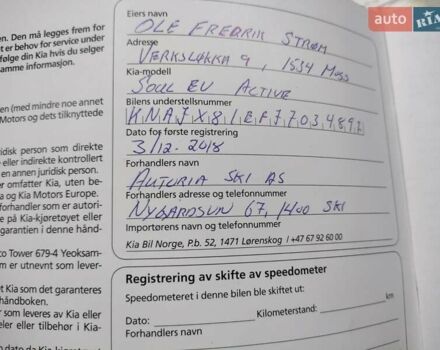 auto RIA
Eiers navn
OLE FREDRIK STRØM
Adresse
VERKSLØKKA 9, 1534 MOSS
Kia-modell
SOUL EV ACTIVE
Bilens understellsnummer
KNAJX81EFJ7034897
Dato for første registrering
3/12-2018
Forhandlers navn
AUTORIA SKI AS
Forhandlers adresse og telefonnummer
NYGÅRDSVN 67, 1400 SKI
Importørens navn og telefonnummer
Kia Bil Norge, P.b. 52, 1471 Lørenskog / +47 67 92 60 00
Registrering av skifte av speedometer
Speedometeret i denne bilen ble skiftet ut:
Dato: Kilometerstand: km
Forhandlers navn
en. Den må legges frem for
er behov for service under
følge din Kia hvis du selger
amme informasjon.
en (med mindre noe annet
Motors og dets tilknyttede
ridisk person som direkte
eller indirekte kontrollert
en annen juridisk person.
er omfatter Kia, uten be-
a og Kia Motors Europe.
orhandler som er autori-
e på Kia-kjøretøyet eller
garantien i denne hånd-
co Tower 679-4 Yeoksam-
om er utnevnt som lever-
et Kia som det garanteres
håndboken.
r som leveres av Kia eller
eler eller tilbehør i Kia-